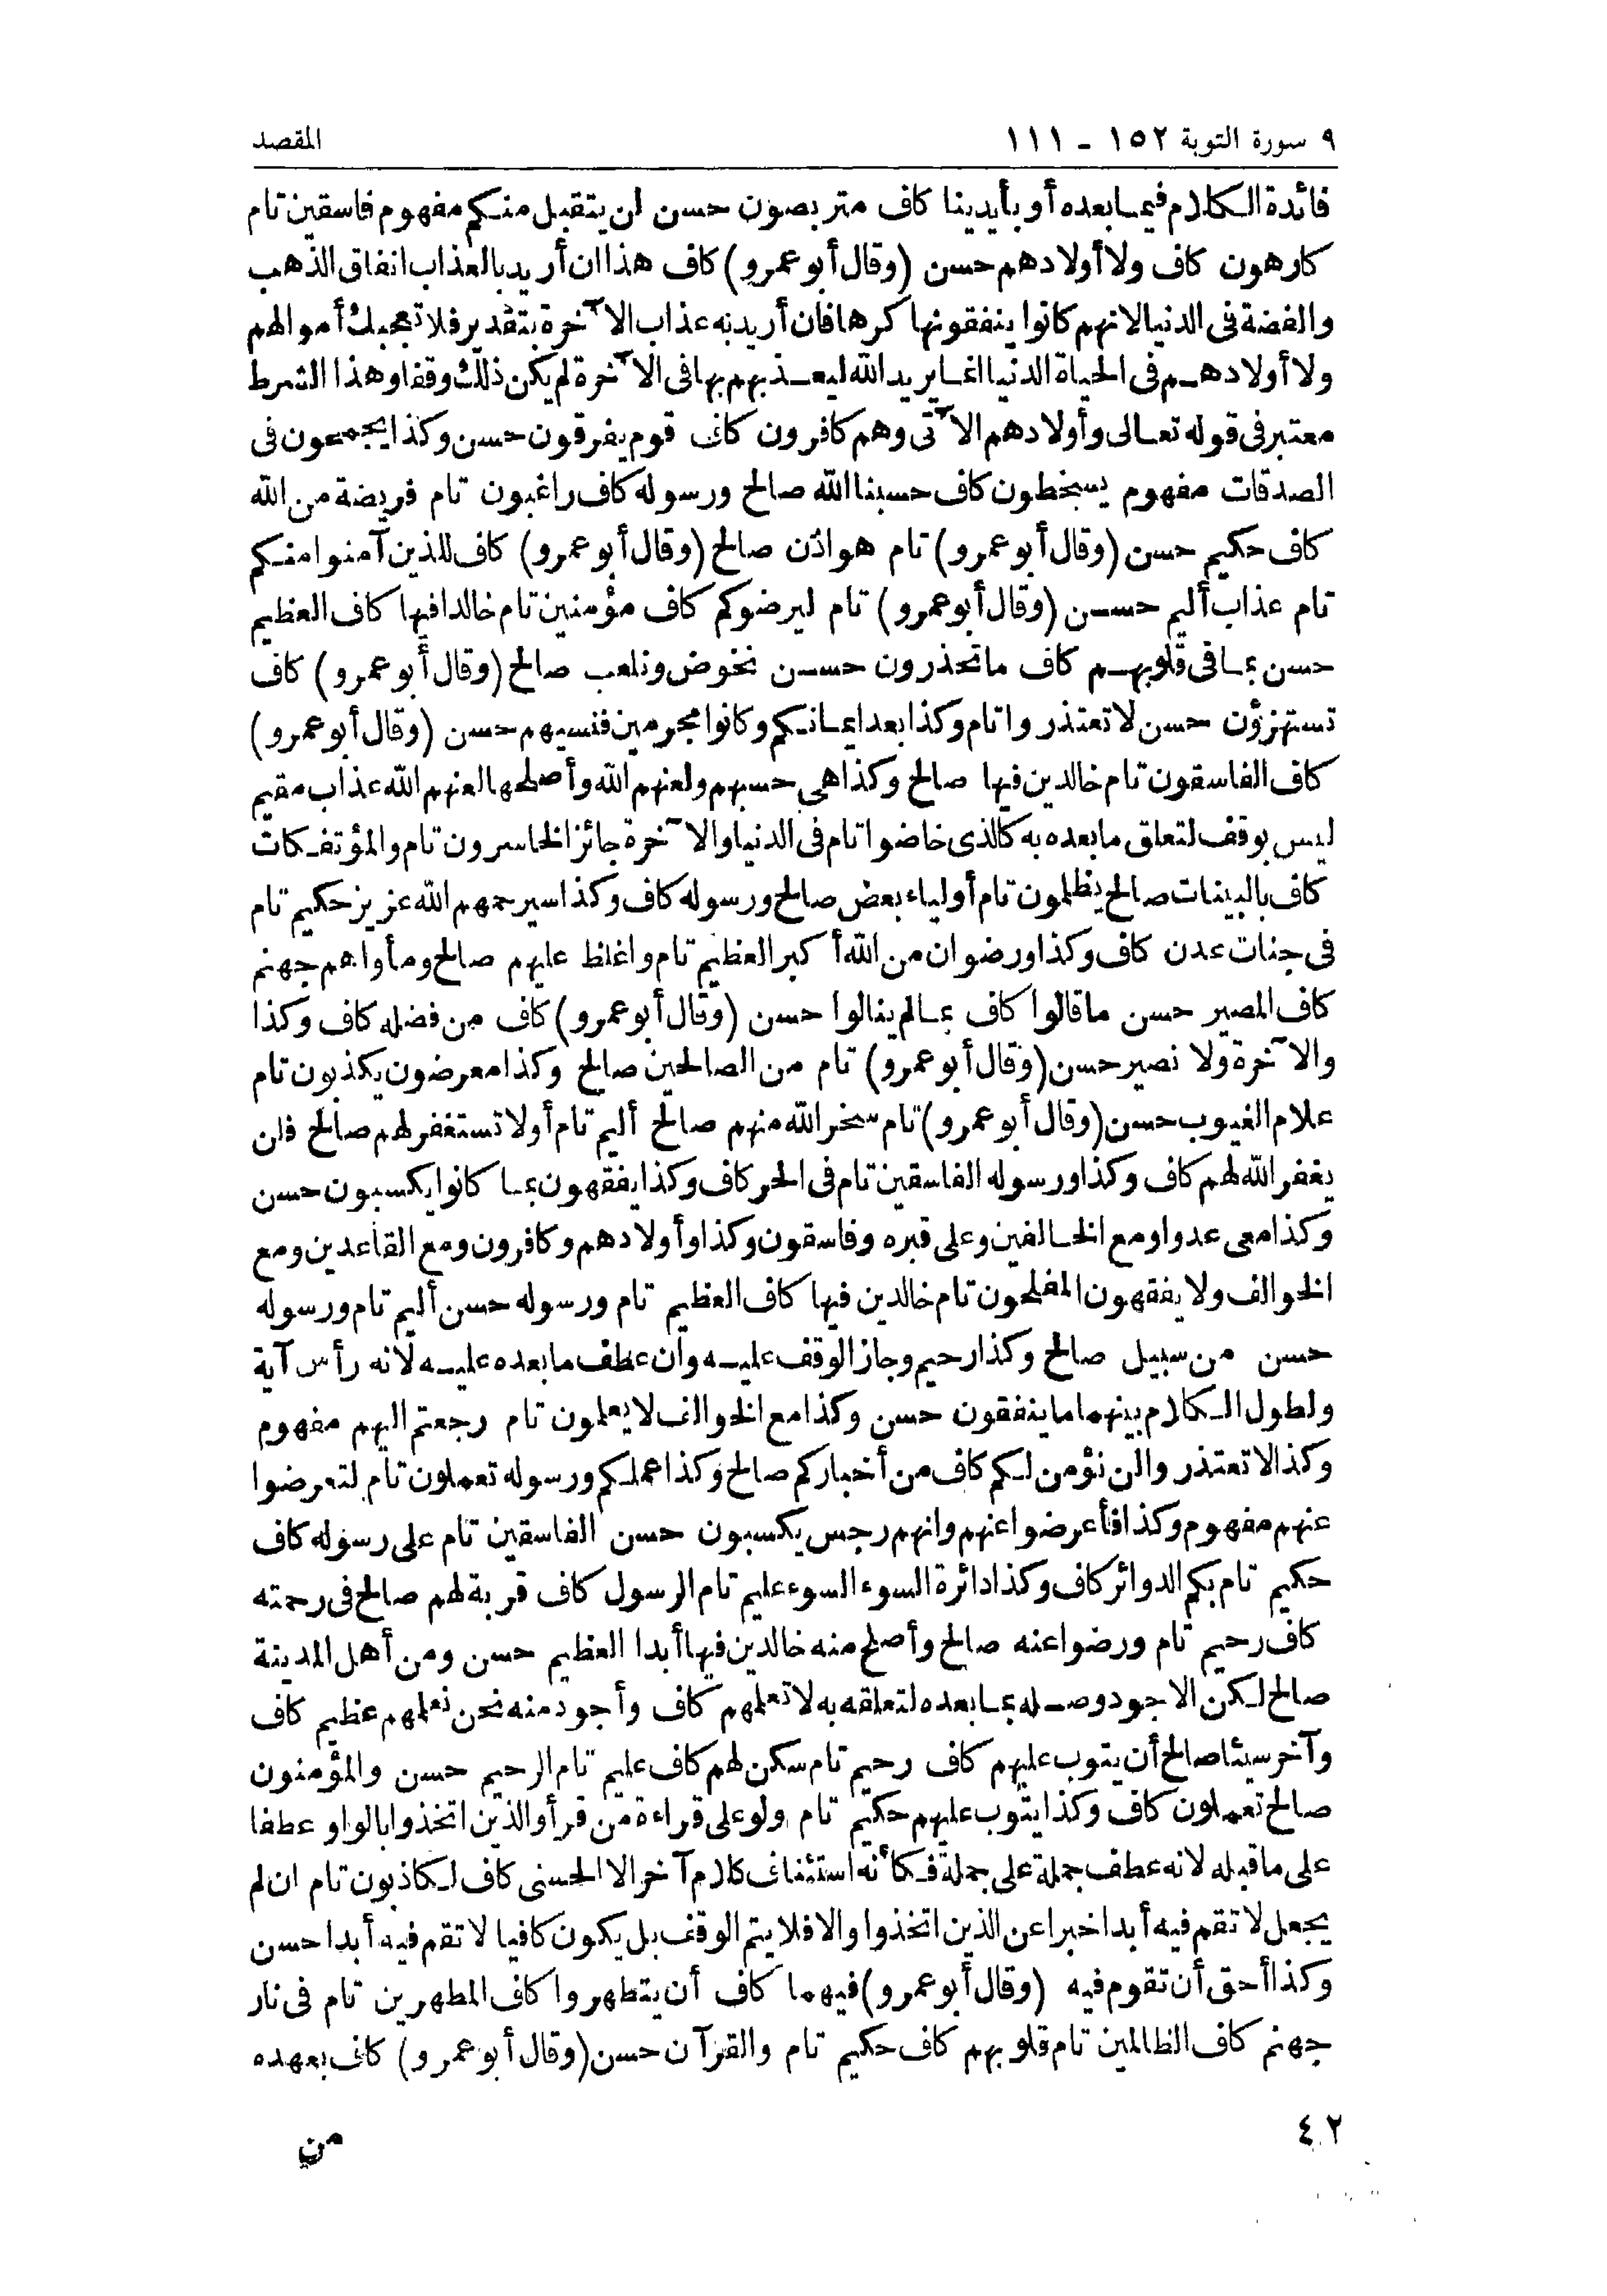 ٩ سورة التوبة ١٥٢ - ١١١
المقصد
فائدة الكلام فيما بعده أو بأيدينا كاف متربصون حسن لن يتقبل منكم مفهوم فاسقين تام
كارهون كاف ولا أولادهم حسن (وقال أبو عمرو) كاف هذا ان أريد بالعذاب انفاق الذهب
والفضة فى الدنيا لانهم كانوا ينفقونها كرها فان أريد به عذاب الآخرة بتقدير فلا تعجبك أموالهم
ولا أولادهم فى الحياة الدنيا انما يريد الله ليعذبهم بها فى الآخرة لم يكن ذلك وقفا وهذا الشرط
معتبر فى قوله تعالى وأولادهم الآتى وهم كافرون كاف قوم يفرقون حسن وكذا يجمحون فى
الصدقات مفهوم يسخطون كاف حسبنا الله صالح ورسوله كاف راغبون تام فريضة من الله
كاف حكيم حسن (وقال أبو عمرو) تام هو اذن صالح (وقال أبو عمرو) كاف للذين آمنوا منكم
تام عذاب أليم حسن (وقال أبو عمرو) تام ليرضوكم كاف مؤمنين تام خالدا فيها كاف العظيم
حسن بما فى قلوبهم كاف ما تحذرون حسن نخوض ونلعب صالح (وقال أبو عمرو) كاف
تستهزؤن حسن لا تعتذروا تام وكذا بعد ايمانكم وكانوا مجرمين فنسيهم حسن (وقال أبو عمرو)
كاف الفاسقون تام خالدين فيها صالح وكذا هى حسبهم ولعنهم الله وأصلحها لعنهم الله عذاب مقيم
ليس بوقف لتعلق ما بعده به كالذى خاضوا تام فى الدنيا والآخرة جائز الخاسرون تام والمؤتفكات
كاف بالبينات صالح يظلمون تام أولياء بعض صالح ورسوله كاف وكذا سيرحمهم الله عزيز حكيم تام
فى جنات عدن كاف وكذا ورضوان من الله أكبر العظيم تام واغلظ عليهم صالح ومأواهم جهنم
كاف المصير حسن ما قالوا كاف بما لم ينالوا حسن (وقال أبو عمرو) كاف من فضله كاف وكذا
والآخرة ولا نصير حسن (وقال أبو عمرو) تام من الصالحين صالح وكذا معرضون يكذبون تام
علام الغيوب حسن (وقال أبو عمرو) تام سخر الله منهم صالح أليم تام أولا تستغفر لهم صالح فلن
يغفر الله لهم كاف وكذا ورسوله الفاسقين تام فى الحر كاف وكذا يفقهون بما كانوا يكسبون حسن
وكذا معى عدوا ومع الخالفين وعلى قبره وفاسقون وكذا وأولادهم وكافرون ومع القاعدين ومع
الخوالف ولا يفقهون المفلحون تام خالدين فيها كاف العظيم تام ورسوله حسن أليم تام ورسوله
حسن من سبيل صالح وكذا رحيم وجاز الوقف عليه وان عطف ما بعده عليه لانه رأس آية
ولطول الكلام بينهما ما ينفقون حسن وكذا مع الخوالف لا يعلمون تام رجعتم اليهم مفهوم
وكذا لا تعتذروا لن نؤمن لكم كاف من أخباركم صالح وكذا عملكم ورسوله تعملون تام لتعرضوا
عنهم مفهوم وكذا فأعرضوا عنهم وانهم رجس يكسبون حسن الفاسقين تام على رسوله كاف
حكيم تام بكم الدوائر كاف وكذا دائرة السوء السوء عليم تام الرسول كاف قربة لهم صالح فى رحمته
كاف رحيم تام ورضوا عنه صالح وأصلح منه خالدين فيها أبدا العظيم حسن ومن أهل المدينة
صالح لكن الاجود وصله بما بعده لتعلقه به لا تعلمهم كاف وأجود منه نحن نعلمهم عظيم كاف
وآخر سيئا صالح أن يتوب عليهم كاف رحيم تام سكن لهم كاف عليم تام الرحيم حسن والمؤمنون
صالح تعملون كاف وكذا يتوب عليهم حكيم تام ولو على قراءة من قرأ والذين اتخذوا بالواو عطفا
على ما قبله لانه عطف جملة على جملة فكأنه استئناف كلام آخر الا الحسنى كاف لكاذبون تام ان لم
يجعل لا تقم فيه أبدا خبرا عن الذين اتخذوا والا فلا يتم الوقف بل يكون كافيا لا تقم فيه أبدا حسن
وكذا أحق أن تقوم فيه (وقال أبو عمرو) فيهما كاف أن يتطهروا كاف المطهرين تام فى نار
جهنم كاف الظالمين تام قلوبهم كاف حكيم تام والقرآن حسن (وقال أبو عمرو) كاف بعهده
٤٢
من